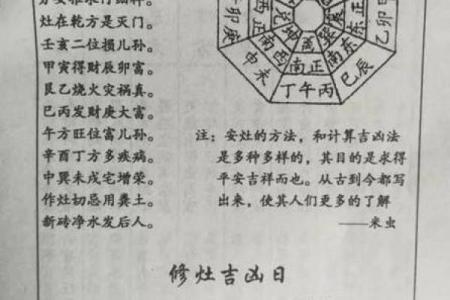 灶在乾方是灭门。
壬亥二位损儿孙。
甲寅得财辰卯富。
艮乙烧火灾祸真。
巳丙发财庚大富。
午方旺位富儿孙。
辛酉丁方多疾病。
中巽未戌宅增荣。
作灶切忌用粪土。
新砖净水发后人。
卯
庚
正
南
西
南
正南
离
巽
东
南
东
正
申未
丁午丙
巳辰
乙卯甲
注：安灶的方法，和计算吉凶法
是多种多样的，其目的是求得
平安吉祥而也。从古到今都写
出来，使其人们更多的了解
——米虫
修灶吉凶日